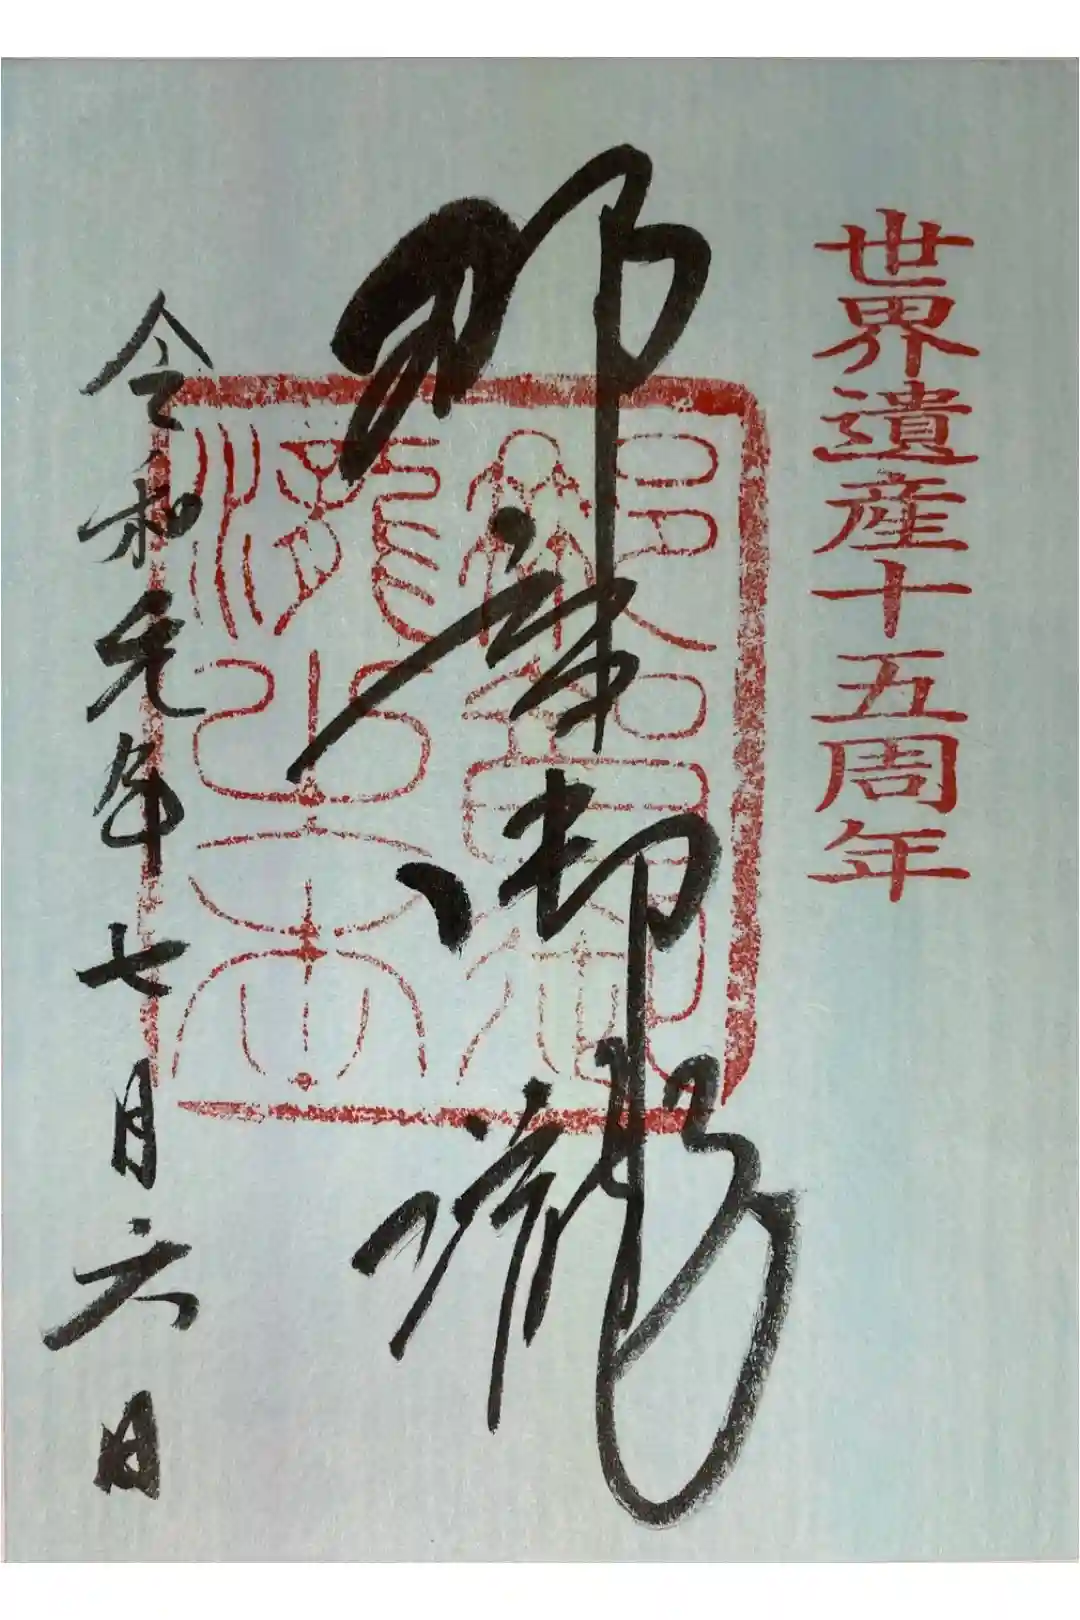 世界遺産十五周年
那智御瀧
令和元年七月六日